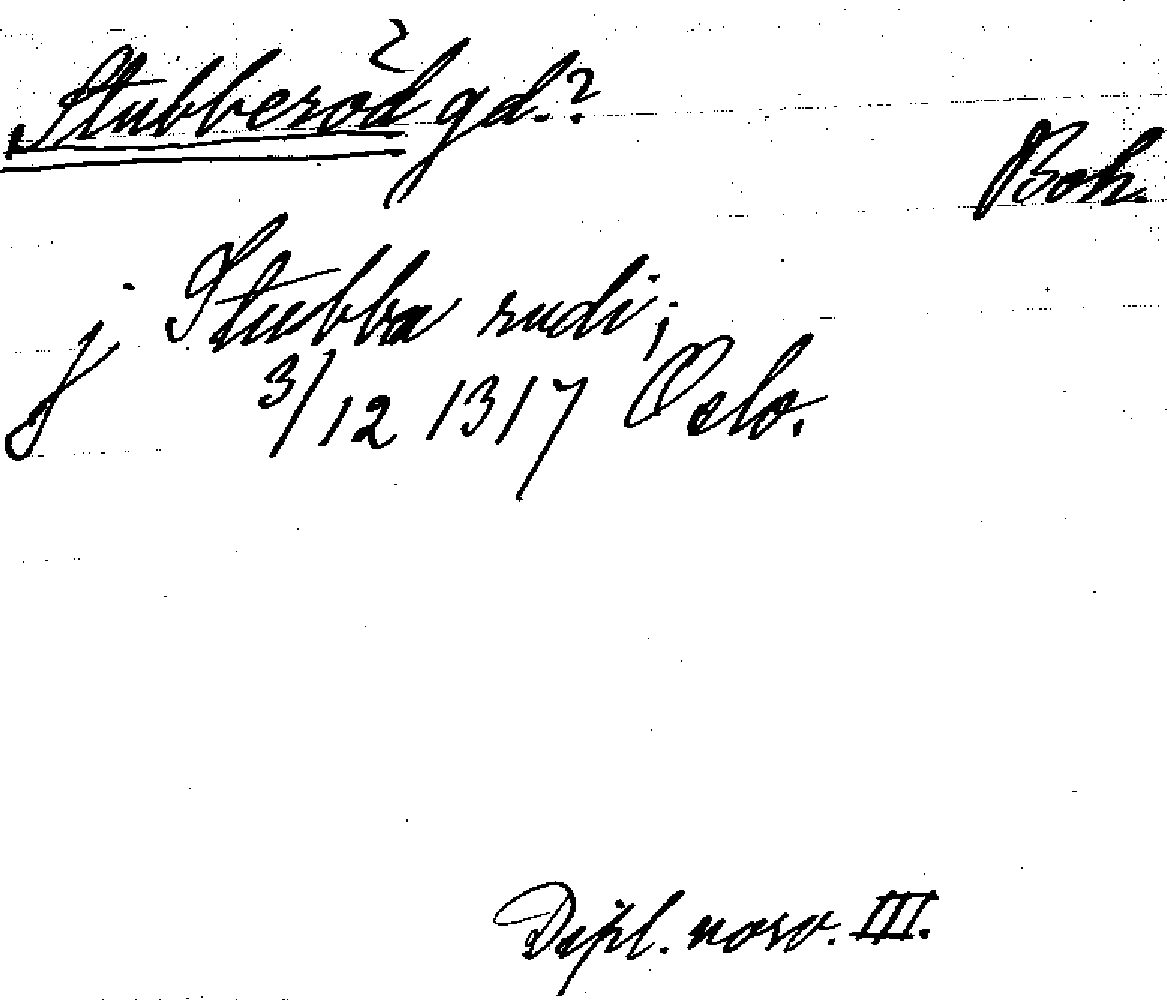 Stubberöd gd.?
Boh.
j Stubba rudi;
3/12 1317 Oslo.
Dipl. norv. III.